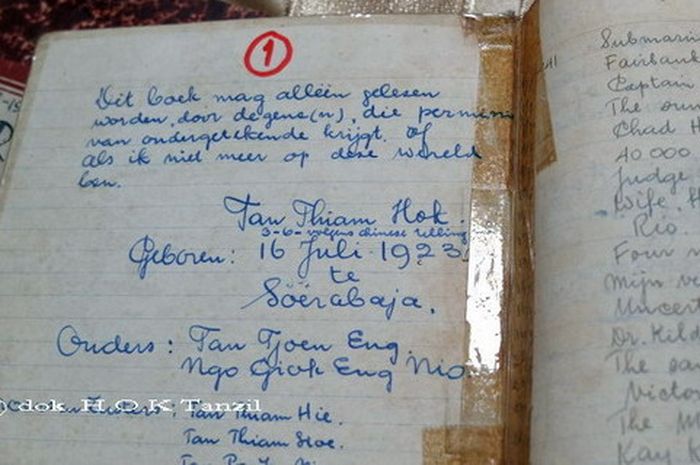 1
Dit boek mag alléén gelezen
worden, door degene(n), die permissi
van ondergetekende krijgt. Of
als ik niet meer op deze wereld
ben.
Tan Thiam Hok.
3-6- volgens chinese telling
Geboren: 16 Juli 1923
te
Söerabaja.
Ouders: Tan Tjoen Eng.
Ngo Giok Eng Nio.
dok H.O.K Tanzil
Tan Thiam Hie.
Tan Thiam
Submarin
Fairbank
Captain
The
Chad H
40 000
Judge
Wife. H
Rio.
Four
Mijn v
Uncer
Dr. Kild
The
Victo
The M
Kay